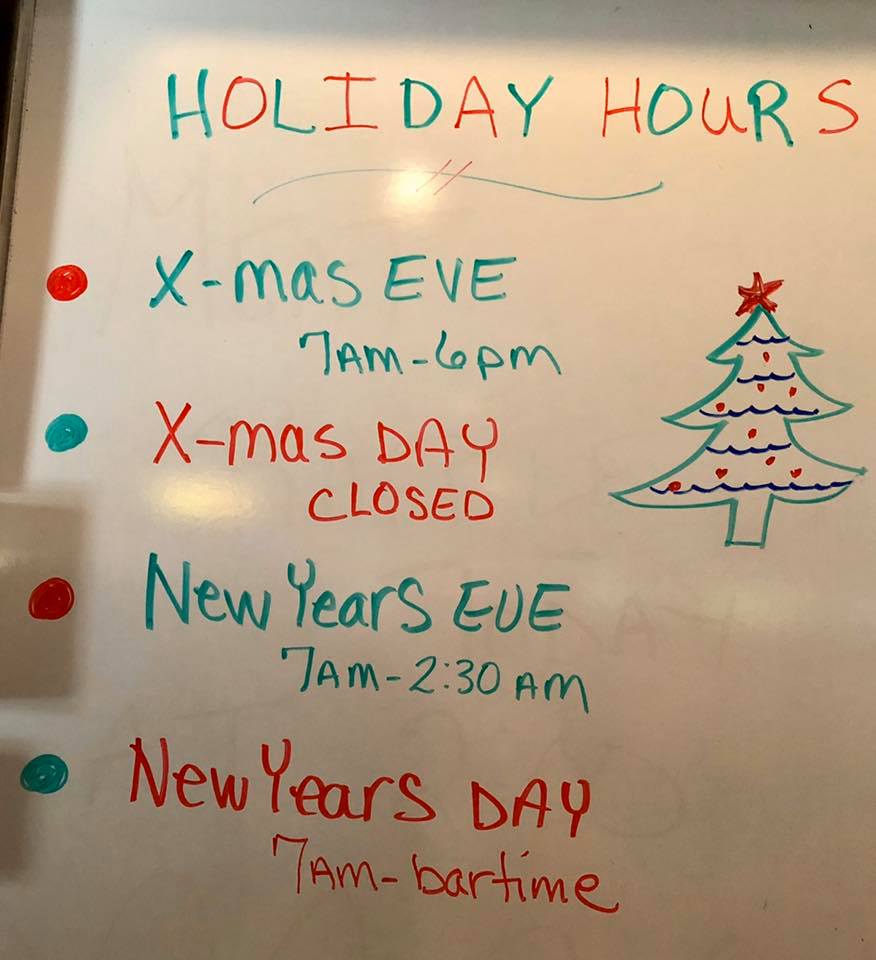 HOLIDAY HOURS
X-mas EVE
7AM-6pm
X-mas DAY
CLOSED
New Years EVE
7AM-2:30 AM
New Years DAY
7AM-bartime